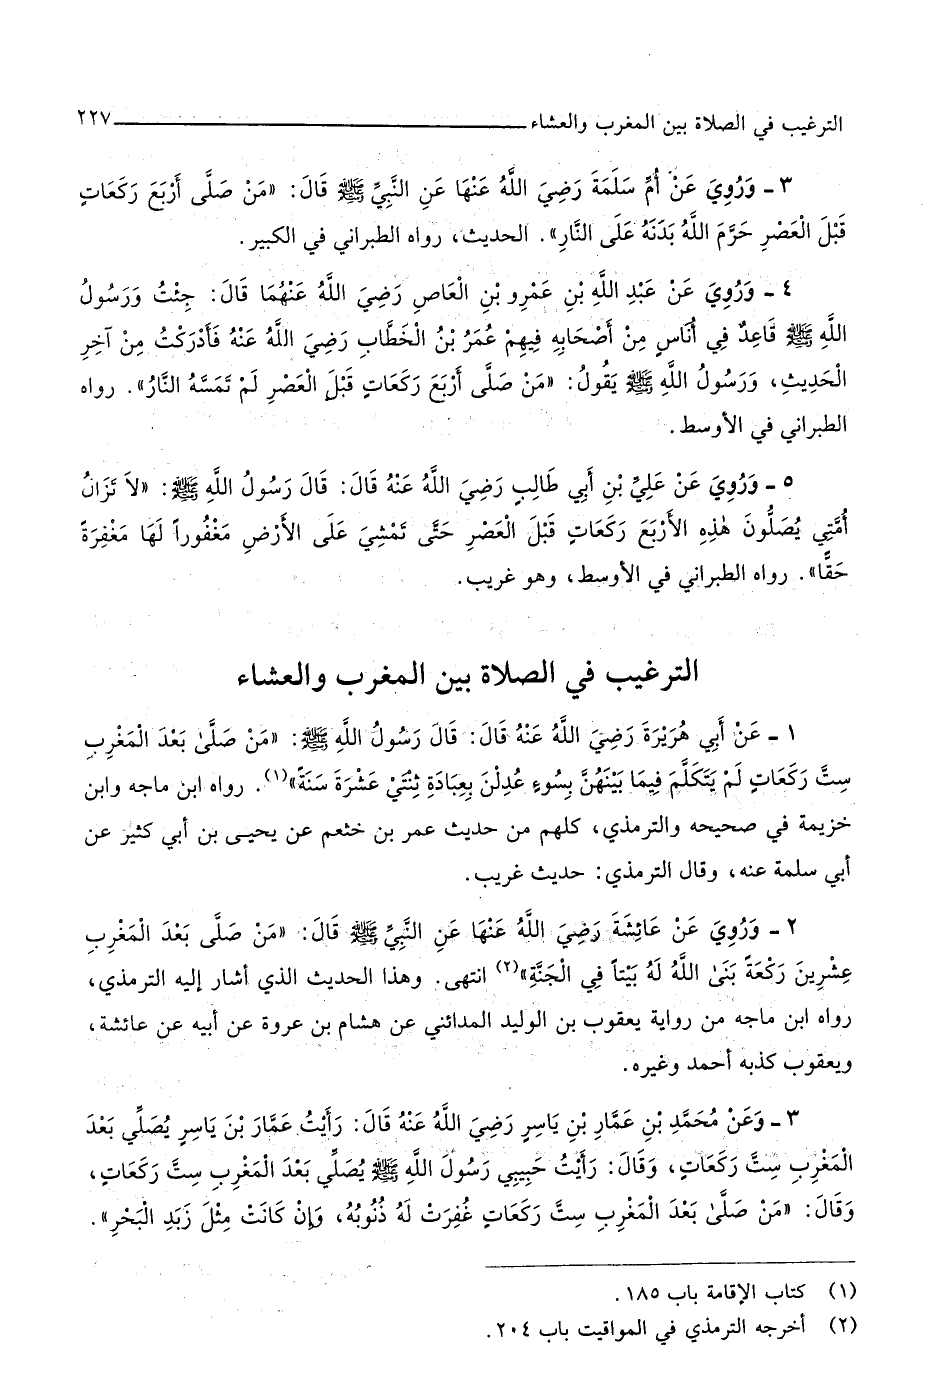 الترغيب في الصلاة بين المغرب والعشاء ٢٢٧
٣ ـ وَرُوِيَ عَنْ أُمِّ سَلَمَةَ رَضِيَ اللَّهُ عَنْهَا عَنِ النَّبِيِّ ﷺ قَالَ: «مَنْ صَلَّى أَرْبَعَ رَكَعَاتٍ
قَبْلَ الْعَصْرِ حَرَّمَ اللَّهُ بَدَنَهُ عَلَى النَّارِ». الحديث، رواه الطبراني في الكبير.
٤ ـ وَرُوِيَ عَنْ عَبْدِ اللَّهِ بْنِ عَمْرِو بْنِ الْعَاصِ رَضِيَ اللَّهُ عَنْهُمَا قَالَ: جِئْتُ وَرَسُولُ
اللَّهِ ﷺ قَاعِدٌ فِي أُنَاسٍ مِنْ أَصْحَابِهِ فِيهِمْ عُمَرُ بْنُ الْخَطَّابِ رَضِيَ اللَّهُ عَنْهُ فَأَدْرَكْتُ مِنْ آخِرِ
الْحَدِيثِ، وَرَسُولُ اللَّهِ ﷺ يَقُولُ: «مَنْ صَلَّى أَرْبَعَ رَكَعَاتٍ قَبْلَ الْعَصْرِ لَمْ تَمَسَّهُ النَّارُ». رواه
الطبراني في الأوسط.
٥ ـ وَرُوِيَ عَنْ عَلِيِّ بْنِ أَبِي طَالِبٍ رَضِيَ اللَّهُ عَنْهُ قَالَ: قَالَ رَسُولُ اللَّهِ ﷺ: «لاَ تَزَالُ
أُمَّتِي يُصَلُّونَ هٰذِهِ الأَرْبَعَ رَكَعَاتٍ قَبْلَ الْعَصْرِ حَتَّى تَمْشِيَ عَلَى الأَرْضِ مَغْفُوراً لَهَا مَغْفِرَةً
حَقًّا». رواه الطبراني في الأوسط، وهو غريب.
الترغيب في الصلاة بين المغرب والعشاء
١ ـ عَنْ أَبِي هُرَيْرَةَ رَضِيَ اللَّهُ عَنْهُ قَالَ: قَالَ رَسُولُ اللَّهِ ﷺ: «مَنْ صَلَّىٰ بَعْدَ الْمَغْرِبِ
سِتَّ رَكَعَاتٍ لَمْ يَتَكَلَّمْ فِيمَا بَيْنَهُنَّ بِسُوءٍ عُدِلْنَ بِعِبَادَةِ ثِنْتَيْ عَشْرَةَ سَنَةً»(١). رواه ابن ماجه وابن
خزيمة في صحيحه والترمذي، كلهم من حديث عمر بن خثعم عن يحيى بن أبي كثير عن
أبي سلمة عنه، وقال الترمذي: حديث غريب.
٢ ـ وَرُوِيَ عَنْ عَائِشَةَ رَضِيَ اللَّهُ عَنْهَا عَنِ النَّبِيِّ ﷺ قَالَ: «مَنْ صَلَّى بَعْدَ الْمَغْرِبِ
عِشْرِينَ رَكْعَةً بَنَىٰ اللَّهُ لَهُ بَيْتاً فِي الْجَنَّةِ»(٢) انتهى. وهذا الحديث الذي أشار إليه الترمذي،
رواه ابن ماجه من رواية يعقوب بن الوليد المدائني عن هشام بن عروة عن أبيه عن عائشة،
ويعقوب كذبه أحمد وغيره.
٣ ـ وَعَنْ مُحَمَّدِ بْنِ عَمَّارِ بْنِ يَاسِرٍ رَضِيَ اللَّهُ عَنْهُ قَالَ: رَأَيْتُ عَمَّارَ بْنَ يَاسِرٍ يُصَلِّي بَعْدَ
الْمَغْرِبِ سِتَّ رَكَعَاتٍ، وَقَالَ: رَأَيْتُ حَبِيبِي رَسُولَ اللَّهِ ﷺ يُصَلِّي بَعْدَ الْمَغْرِبِ سِتَّ رَكَعَاتٍ،
وَقَالَ: «مَنْ صَلَّىٰ بَعْدَ الْمَغْرِبِ سِتَّ رَكَعَاتٍ غُفِرَتْ لَهُ ذُنُوبُهُ، وَإِنْ كَانَتْ مِثْلَ زَبَدِ الْبَحْرِ».
(١) كتاب الإقامة باب ١٨٥.
(٢) أخرجه الترمذي في المواقيت باب ٢٠٤.